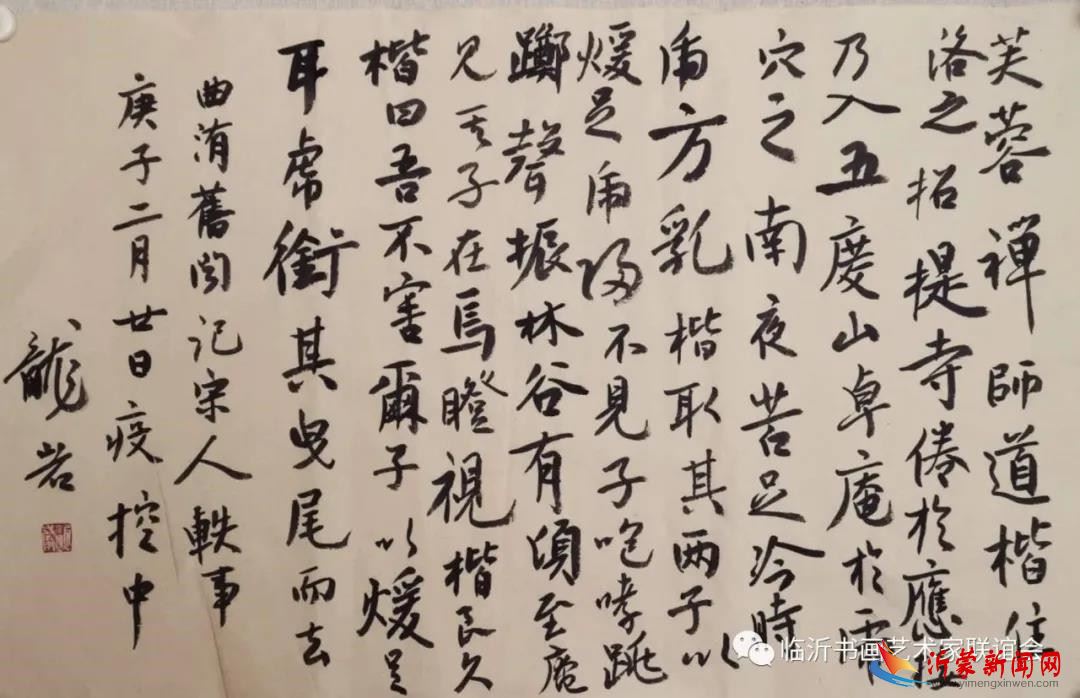 芙蓉禪師道楷住
洛之招提寺倦於應接
乃入五度山卓庵於虎
穴之南夜苦足冷時
虎方乳楷取其两子以
煖足虎歸不見子咆哮跳
躑聲振林谷有頃至庵
见其子在焉瞪視楷良久
楷曰吾不害爾子以煖足
耳虎銜其曳尾而去
曲洧舊闻记宋人軼事
庚子二月廿日疫控中
龍岩
临沂书画艺术家联谊会
沂蒙新闻网
www.yimengxinwen.com